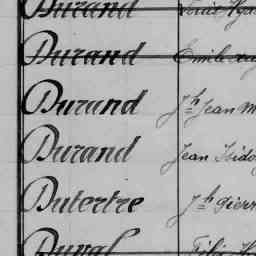 Durand
Durand Emile
Durand Jh Jean
Durand Jean Isido
Dutertre Jh Pierr
Duval